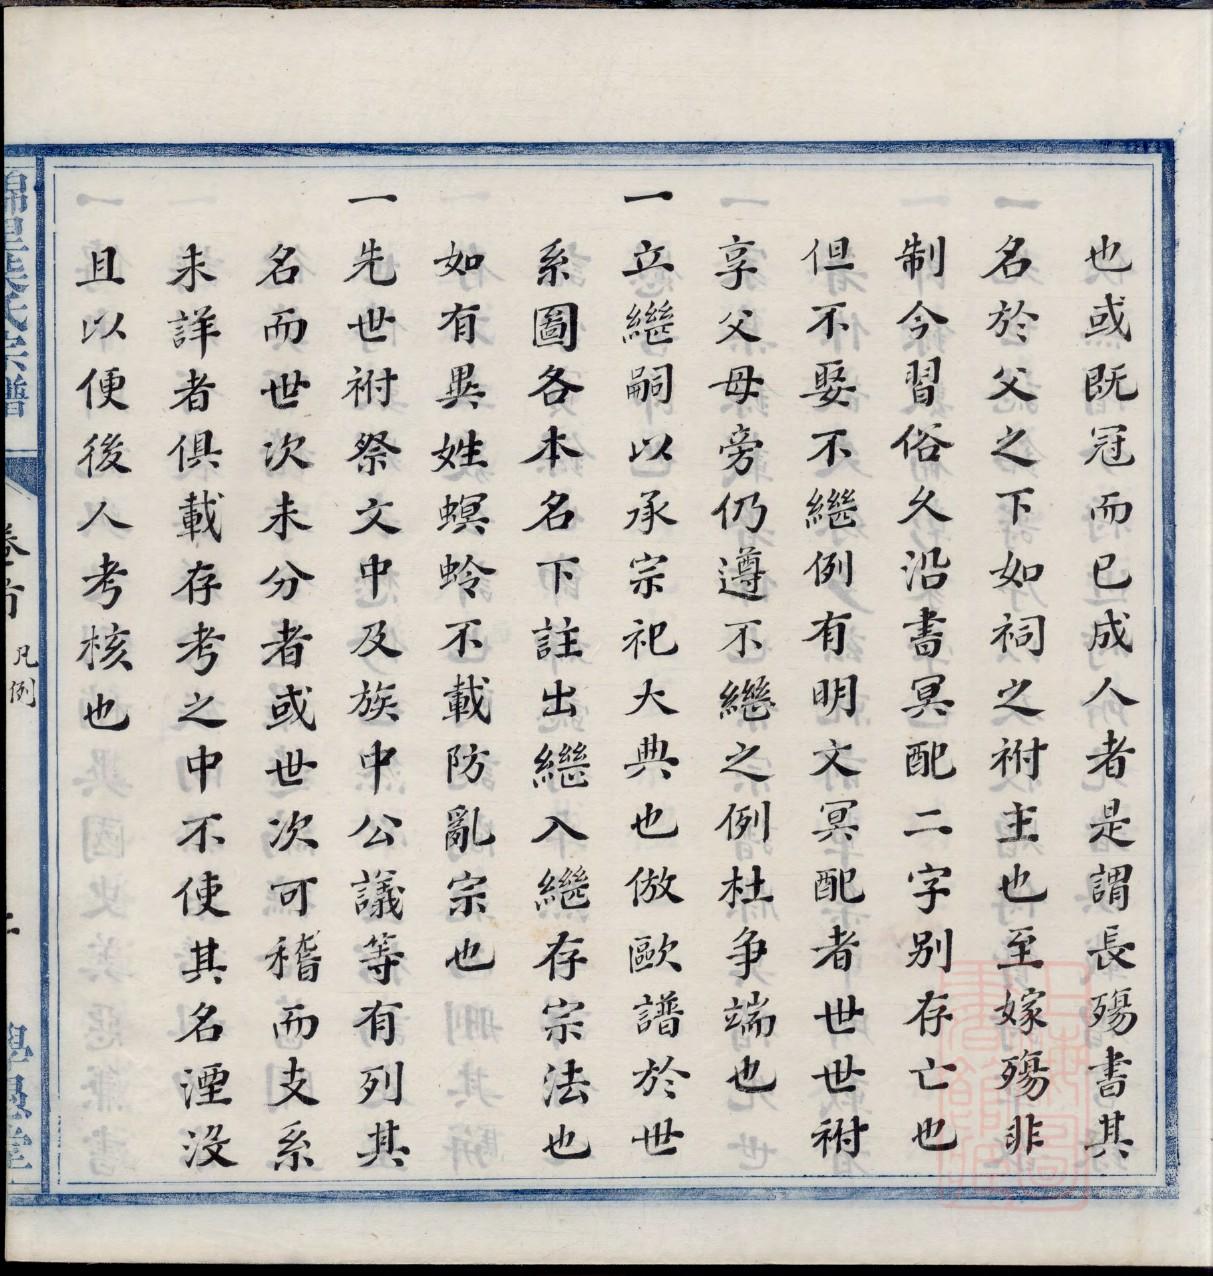 也或既冠而已成人者是謂長殤書其
名於父之下如祠之祔主也至嫁殤非
制今習俗久沿書冥配二字别存亡也
但不娶不繼例有明文冥配者世世祔
享父母旁仍遵不繼之例杜争端也
一立繼嗣以承宗祀大典也倣歐譜於世
系圖各本名下註出繼入繼存宗法也
如有異姓螟蛉不載防亂宗也
一先世祔祭文中及族中公議等有列其
名而世次未分者或世次可稽而支系
未詳者俱載存考之中不使其名湮没
且以便後人考核也
氏宗譜
卷首
凡例